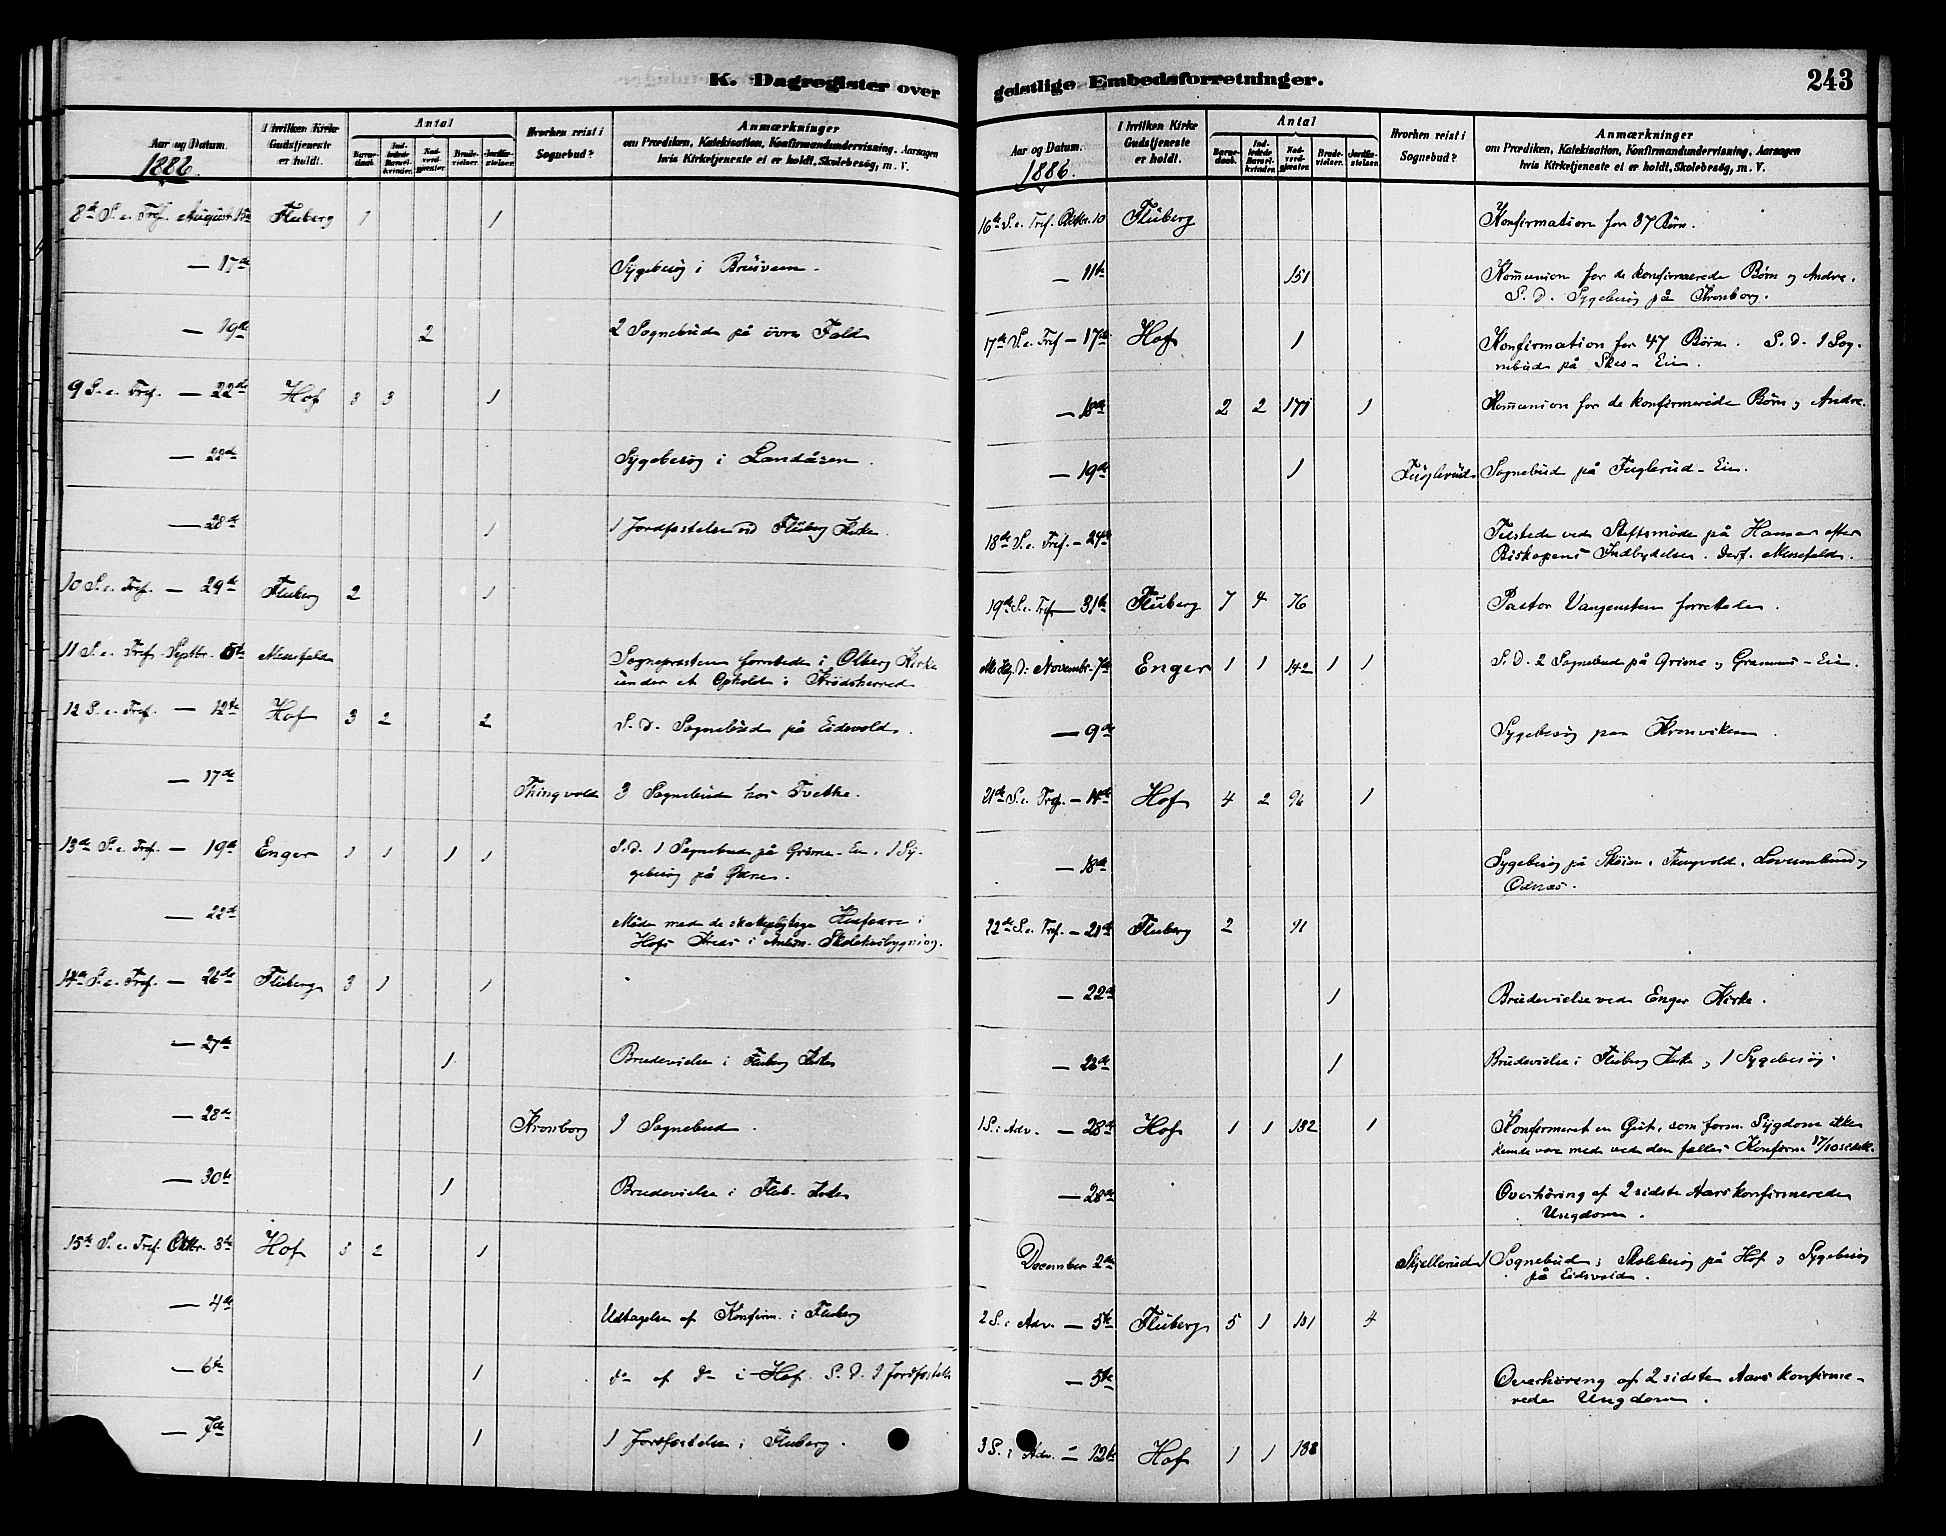 K. Dagregister over
Aar og Datum.
1886.
I hvilken Kirke Gudstjeneste er holdt.
Antal
Barnedaab.
Indledede Barselkvinder.
Nadverdgjester.
Brudevielser.
Jordfæstelser.
Hvorhen reist i Sognebud?
Anmærkninger
om Prædiken, Katekisation, Konfirmandundervisning, Aarsagen
hvis Kirketjeneste ei er holdt, Skolebesøg, m. V.
8de S. e. Tref. August 15de Fluberg 1 1
— 17de Sygebesøg i
— 19de 2 2 Sognebud på övre Fald
9 S. e. Tref. — 22de Hof 3 3 1
— 22de Sygebesøg i Landåsen.
— 28de 1 1 Jordfæstelse ved Fluberg Kirke.
10 S. e. Tref. — 29de Fluberg 2 1
11 S. e. Tref. Septbr. 5te Messefald Sognepræsten forrettede i Olberg Kirke
under et Ophold i
12 S. e. Tref. — 12te Hof 3 2 2 S. D. Sognebud på Eidsvold.
— 17de Thingvold 3 Sognebud hos
13de S. e. Tref. — 19de Enger 1 1 1 1 S. D. 1 Sognebud på Grime-Eie. 1 Sy-
gebesøg på
— 22de Møde med de skattepligtige Husfædre i
Hofs Kreds i Anledn. Skolehusbygning.
14de S. e. Tref. — 26de Fluberg 3 1 1
— 27de 1 Brudevielse i Fluberg Kirke
— 28de Kronborg 1 Sognebud.
— 30te 1 Brudevielse i Flub. Kirke
15de S. e. Tref. Oktbr. 3de Hof 5 2 1
— 4de Udtagelse af Konfirm. i Fluberg
— 6te 1 do af do i Hof. S. D. 1 Jordfæstelse
— 7de 1 1 Jordfæstelse i Fluberg.
geistlige Embedsforretninger.
243
Aar og Datum.
1886.
I hvilken Kirke Gudstjeneste er holdt.
Antal
Barnedaab.
Indledede Barselkvinder.
Nadverdgjester.
Brudevielser.
Jordfæstelser.
Hvorhen reist i Sognebud?
Anmærkninger
om Prædiken, Katekisation, Konfirmandundervisning, Aarsagen
hvis Kirketjeneste ei er holdt, Skolebesøg, m. V.
16de S. e. Tref. Oktbr. 10 Fluberg Konfirmation for 37 Børn.
— 11te 151 Kommunion for de konfirmerede Børn og Andre.
S. D. Sygebesøg på Kronborg.
17de S. e. Tref. — 17de Hof 1 Konfirmation for 47 Børn. S. D. 1 Sog-
nebud på Eie.
— 18de 2 2 171 1 Kommunion for de konfirmerede Børn og Andre.
— 19de 1 Fuglerud Sognebud på Fuglerud-Eie.
18de S. e. Tref. — 24de Tilstede ved Stiftsmøde på Hamar efter
Biskopens Indbydelse. Derf. Messefald.
19de S. e. Tref. — 31te Fluberg 7 4 76 Pastor Vangensten forrettede.
Alle Helg. D. Novembr. 7de Enger 1 1 142 1 1 S. D. 2 Sognebud på Grime og -Eie.
— 9de Sygebesøg paa Kronviken.
21de S. e. Tref. — 14de Hof 4 2 96 1
— 18de Sygebesøg på Skøien, Thingvold, og
Odnæs.
22de S. e. Tref. — 21de Fluberg 2 91
— 22de 1 Brudevielse ved Enger Kirke.
— 26de 1 Brudevielse i Fluberg Kirke og 1 Sygebesøg.
1 S. i Adv. — 28de Hof 1 1 182 1 Konfirmeret en Gut, som form. Sygdom ikke
kunde være med ved den fælles Konfirm. 17/10 sidstl.
— 28de Overhöring af 2 sidste Aars konfirmerede
Ungdom.
December 2de Skjellerud 1 Sognebud; Skolebesøg på Hof og Sygebesøg
på Eidsvold.
2 S. i Adv. — 5te Fluberg 5 1 181 4
— 5te Overhöring af 2 sidste Aars konfirme-
rede Ungdom.
3 S. i Adv. — 12te Hof 1 1 188